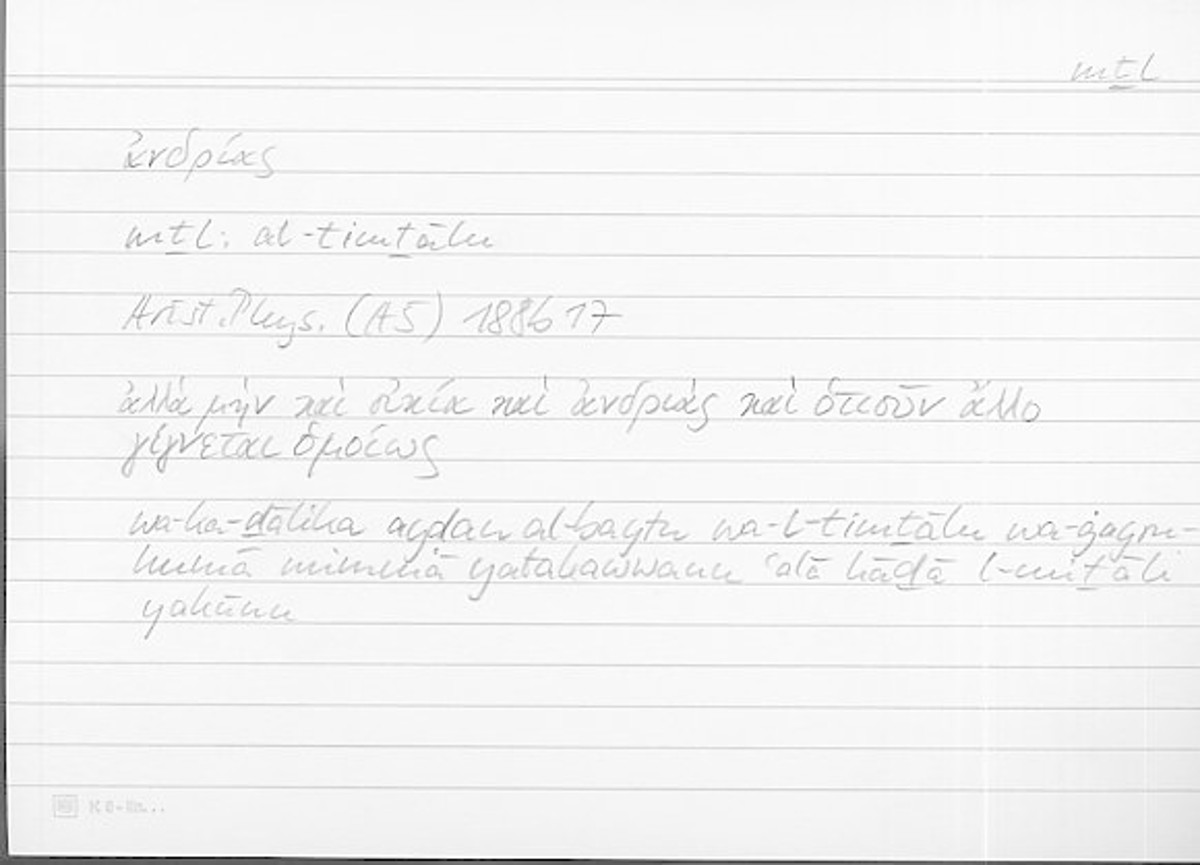 mṯl
ἀνδρίας
mṯl: al-timṯālu
Arist. Phys. (A5) 188b17
ἀλλὰ μὴν καὶ οἰκία καὶ ἀνδριὰς καὶ ὁτιοῦν ἄλλο
γίγνεται ὁμοίως
wa-ka-ḏālika ayḍan al-baytu wa-l-timṯālu wa-ġayru-
humā mimmā yatakawwanu ʿalā hāḏā l-miṯāli
yakūnu